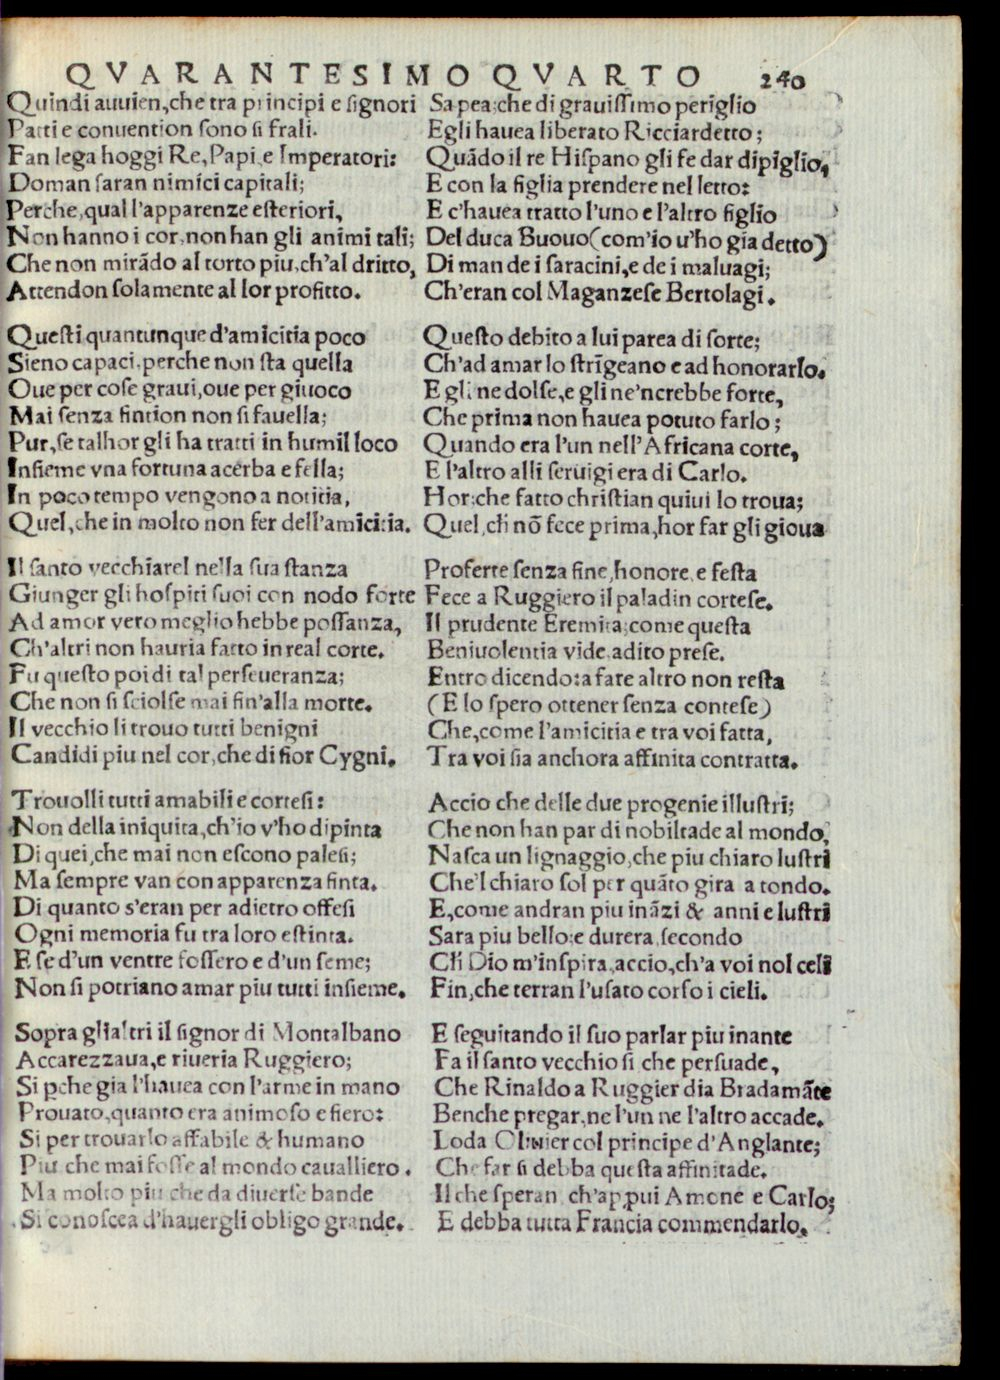 QVARANTESIMO QVARTO 240
Quindi auuien, che tra principi e signori
Patti e conuention sono si frali.
Fan lega hoggi Re, Papi, e Imperatori:
Doman saran nimici capitali;
Perche, qual l'apparenze esteriori,
Non hanno i cor, non han gli animi tali;
Che non mirãdo al torto piu, ch'al dritto,
Attendon solamente al lor profitto.
Questi quantunque d'amicitia poco
Sieno capaci, perche non sta quella
Oue per cose graui, oue per giuoco
Mai senza fintion non si fauella;
Pur, se talhor gli ha tratti in humil loco
Insieme vna fortuna acerba e fella;
In poco tempo vengono a notitia,
Quel, che in molto non fer dell'amicitia.
Il santo vecchiarel nella sua stanza
Giunger gli hospiti suoi con nodo forte
Ad amor vero meglio hebbe possanza,
Ch'altri non hauria fatto in real corte.
Fu questo poi di tal perseueranza;
Che non si sciolse mai fin'alla morte.
Il vecchio li trouo tutti benigni
Candidi piu nel cor, che di fior Cygni.
Trouolli tutti amabili e cortesi:
Non della iniquita, ch'io v'ho dipinta
Di quei, che mai non escono palesi;
Ma sempre van con apparenza finta.
Di quanto s'eran per adietro offesi
Ogni memoria fu tra loro estinta.
E se d'un ventre fossero e d'un seme;
Non si potriano amar piu tutti insieme.
Sopra gli altri il signor di Montalbano
Accarezzaua, e riueria Ruggiero;
Si pche gia l'hauea con l'arme in mano
Prouato, quanto era animoso e fiero:
Si per trouarlo affabile & humano
Piu che mai fosse al mondo caualliero.
Ma molto piu che da diuerse bande
Si conoscea d'hauergli obligo grande.
Sapea, che di grauissimo periglio
Egli hauea liberato Ricciardetto;
Quãdo il re Hispano gli fe dar di piglio,
E con la figlia prendere nel letto:
E c'hauea tratto l'uno e l'altro figlio
Del duca Buouo (com'io u'ho gia detto)
Di man de i saracini, e de i maluagi;
Ch'eran col Maganzese Bertolagi.
Questo debito a lui parea di sorte;
Ch'ad amar lo strĩgeano e ad honorarlo.
E gli ne dolse, e gli ne'ncrebbe forte,
Che prima non hauea potuto farlo;
Quando era l'un nell'Africana corte,
E l'altro alli seruigi era di Carlo.
Hor, che fatto christian quiui lo troua;
Quel, ch nõ fece prima, hor far gli gioua
Proferte senza fine, honore, e festa
Fece a Ruggiero il paladin cortese.
Il prudente Eremita, come questa
Beniuolentia vide, adito prese.
Entro dicendo: a fare altro non resta
(E lo spero ottener senza contese)
Che, come l'amicitia e tra voi fatta,
Tra voi sia anchora affinita contratta.
Accio che delle due progenie illustri;
Che non han par di nobiltade al mondo,
Nasca un lignaggio, che piu chiaro lustri
Che'l chiaro sol per quãto gira a tondo.
E, come andran piu inãzi & anni e lustri
Sara piu bello: e durera, secondo
Ch Dio m'inspira, accio, ch'a voi nol celi
Fin, che terran l'usato corso i cieli.
E seguitando il suo parlar piu inante
Fa il santo vecchio si che persuade,
Che Rinaldo a Ruggier dia Bradamãte
Benche pregar, ne l'un ne l'altro accade.
Loda Oliuier col principe d'Anglante;
Che far si debba questa affinitade.
Il che speran, ch'appui Amone e Carlo;
E debba tutta Francia commendarlo.